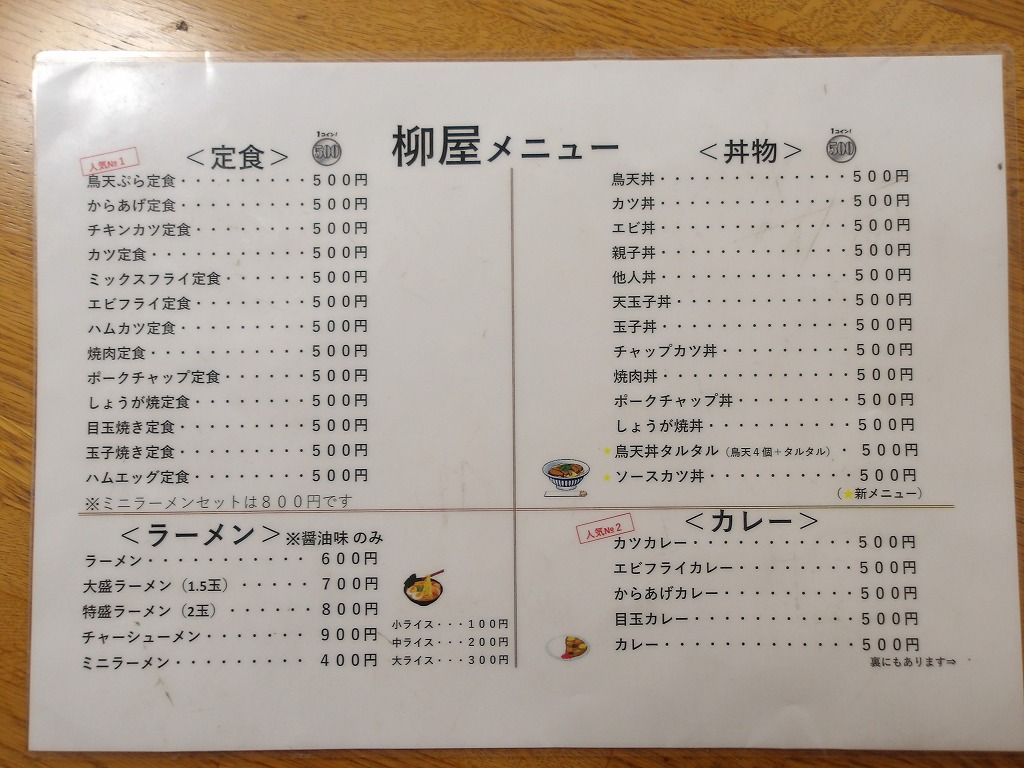 柳屋メニュー
＜定食＞
1コイン！
500
人気№1
鳥天ぷら定食・・・・・・・・・５００円
からあげ定食・・・・・・・・・５００円
チキンカツ定食・・・・・・・・５００円
カツ定食・・・・・・・・・・・５００円
ミックスフライ定食・・・・・・５００円
エビフライ定食・・・・・・・・５００円
ハムカツ定食・・・・・・・・・５００円
焼肉定食・・・・・・・・・・・５００円
ポークチャップ定食・・・・・・５００円
しょうが焼定食・・・・・・・・５００円
目玉焼き定食・・・・・・・・・５００円
玉子焼き定食・・・・・・・・・５００円
ハムエッグ定食・・・・・・・・５００円
※ミニラーメンセットは８００円です
＜丼物＞
1コイン！
500
鳥天丼・・・・・・・・・・・・・５００円
カツ丼・・・・・・・・・・・・・５００円
エビ丼・・・・・・・・・・・・・５００円
親子丼・・・・・・・・・・・・・５００円
他人丼・・・・・・・・・・・・・５００円
天玉子丼・・・・・・・・・・・・５００円
玉子丼・・・・・・・・・・・・・５００円
チャップカツ丼・・・・・・・・・５００円
焼肉丼・・・・・・・・・・・・・５００円
ポークチャップ丼・・・・・・・・５００円
しょうが焼丼・・・・・・・・・・５００円
★鳥天丼タルタル（鳥天４個＋タルタル）・ ５００円
★ソースカツ丼・・・・・・・・・・５００円
（★新メニュー）
＜ラーメン＞※醤油味 のみ
ラーメン・・・・・・・・・・・６００円
大盛ラーメン（1.5玉）・・・・・７００円
特盛ラーメン（2玉）・・・・・・８００円
チャーシューメン・・・・・・・９００円
ミニラーメン・・・・・・・・・４００円
小ライス・・・１００円
中ライス・・・２００円
大ライス・・・３００円
＜カレー＞
人気№2
カツカレー・・・・・・・・・・・５００円
エビフライカレー・・・・・・・・５００円
からあげカレー・・・・・・・・・５００円
目玉カレー・・・・・・・・・・・５００円
カレー・・・・・・・・・・・・・５００円
裏にもあります⇒